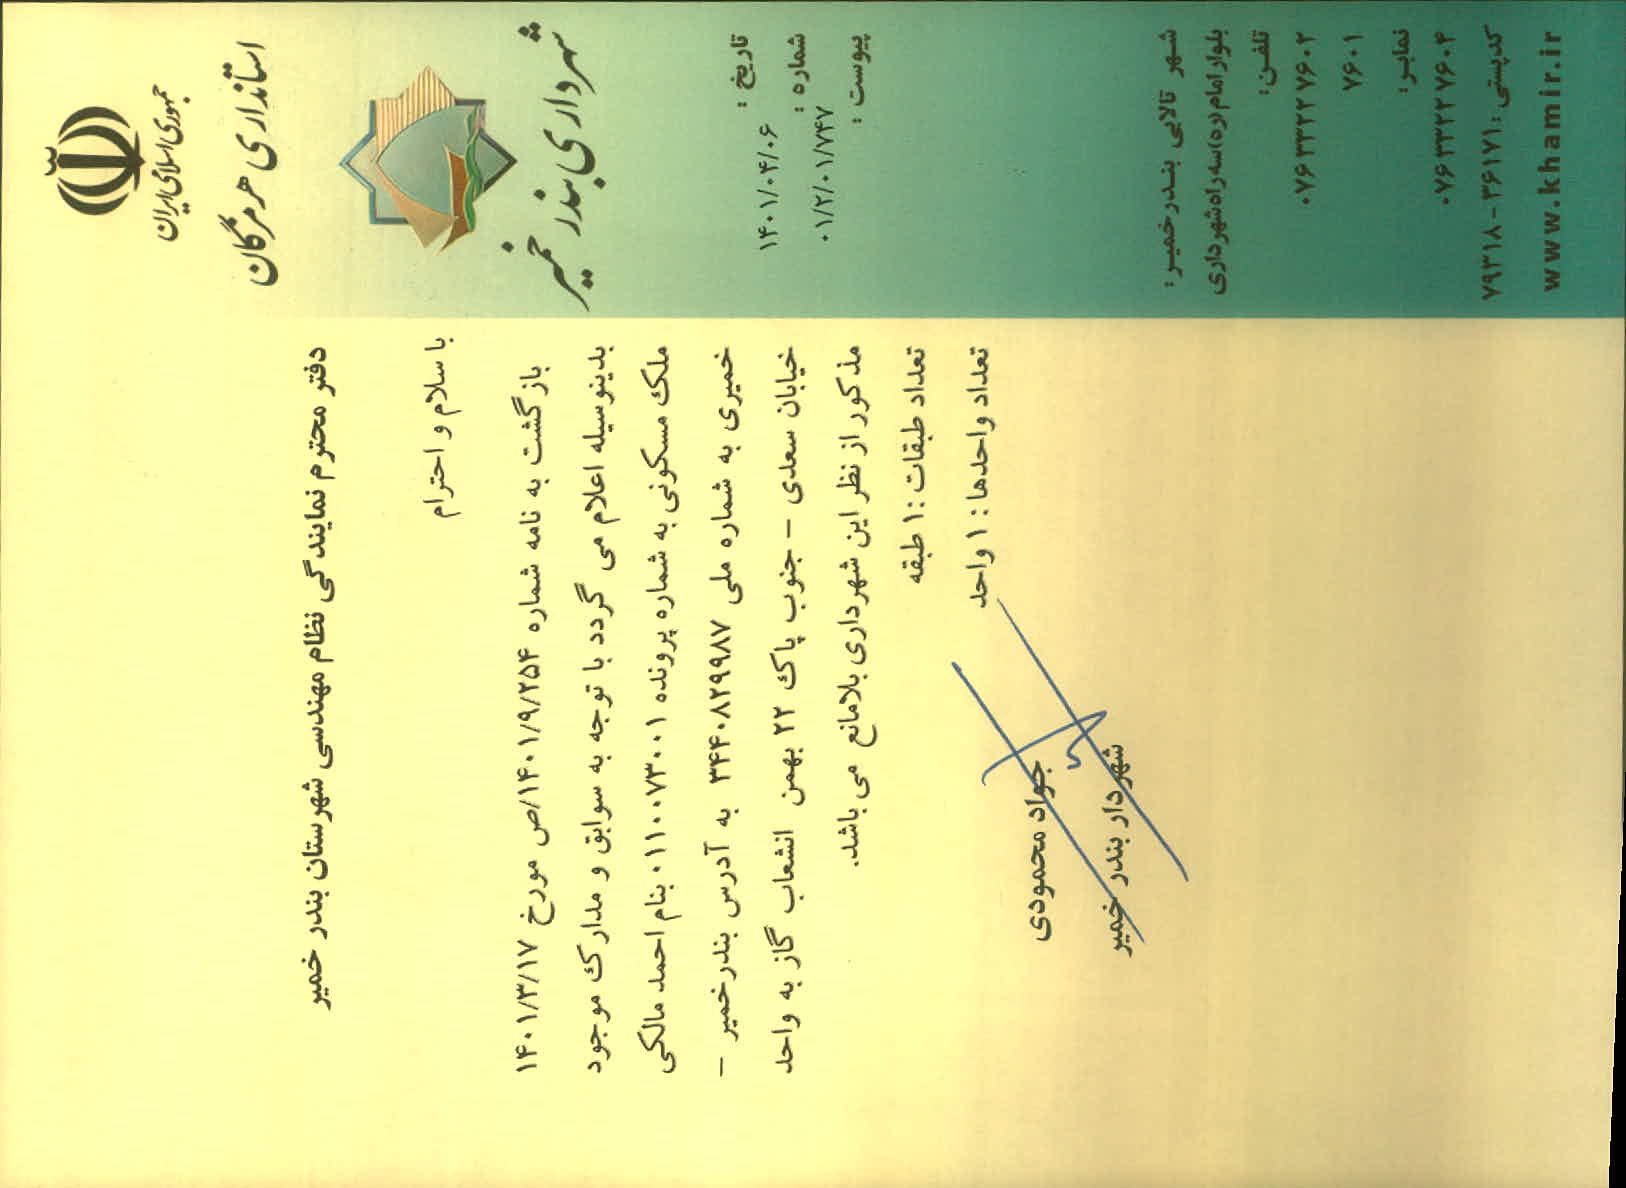 جمهوری اسلامی ایران
استانداری هرمزگان
شهرداری بندر خمیر
تاریخ :
۱۴۰۱/۰۴/۰۶
شماره :
۰۱/۲/۰۱/۷۴۷
پیوست :
دفتر محترم نمایندگی نظام مهندسی شهرستان بندر خمیر
با سلام و احترام
بازگشت به نامه شماره ۱۴۰۱/۹/۲۵۴/ص مورخ ۱۴۰۱/۳/۱۷
بدینوسیله اعلام می گردد با توجه به سوابق و مدارک موجود
ملک مسکونی به شماره پرونده ۰۱۱۰۰۷۳۰۰۱ بنام احمد مالکی
خمیری به شماره ملی ۳۴۴۰۸۲۹۹۸۷ به آدرس بندرخمیر –
خیابان سعدی – جنوب پاک ۲۲ بهمن انشعاب گاز به واحد
مذکور از نظر این شهرداری بلامانع می باشد.
تعداد طبقات :۱ طبقه
تعداد واحدها : ۱ واحد
جواد محمودی
شهردار بندر خمیر
شهر تالابی بندرخمیر:
بلوار امام(ره)سه راه شهرداری
تلفن:
۰۷۶۳۳۲۲۷۶۰۲
۷۶۰۱
نمابر:
۰۷۶۳۳۲۲۷۶۰۴
کدپستی :۳۶۱۷۱-۷۹۳۱۸
www.khamir.ir